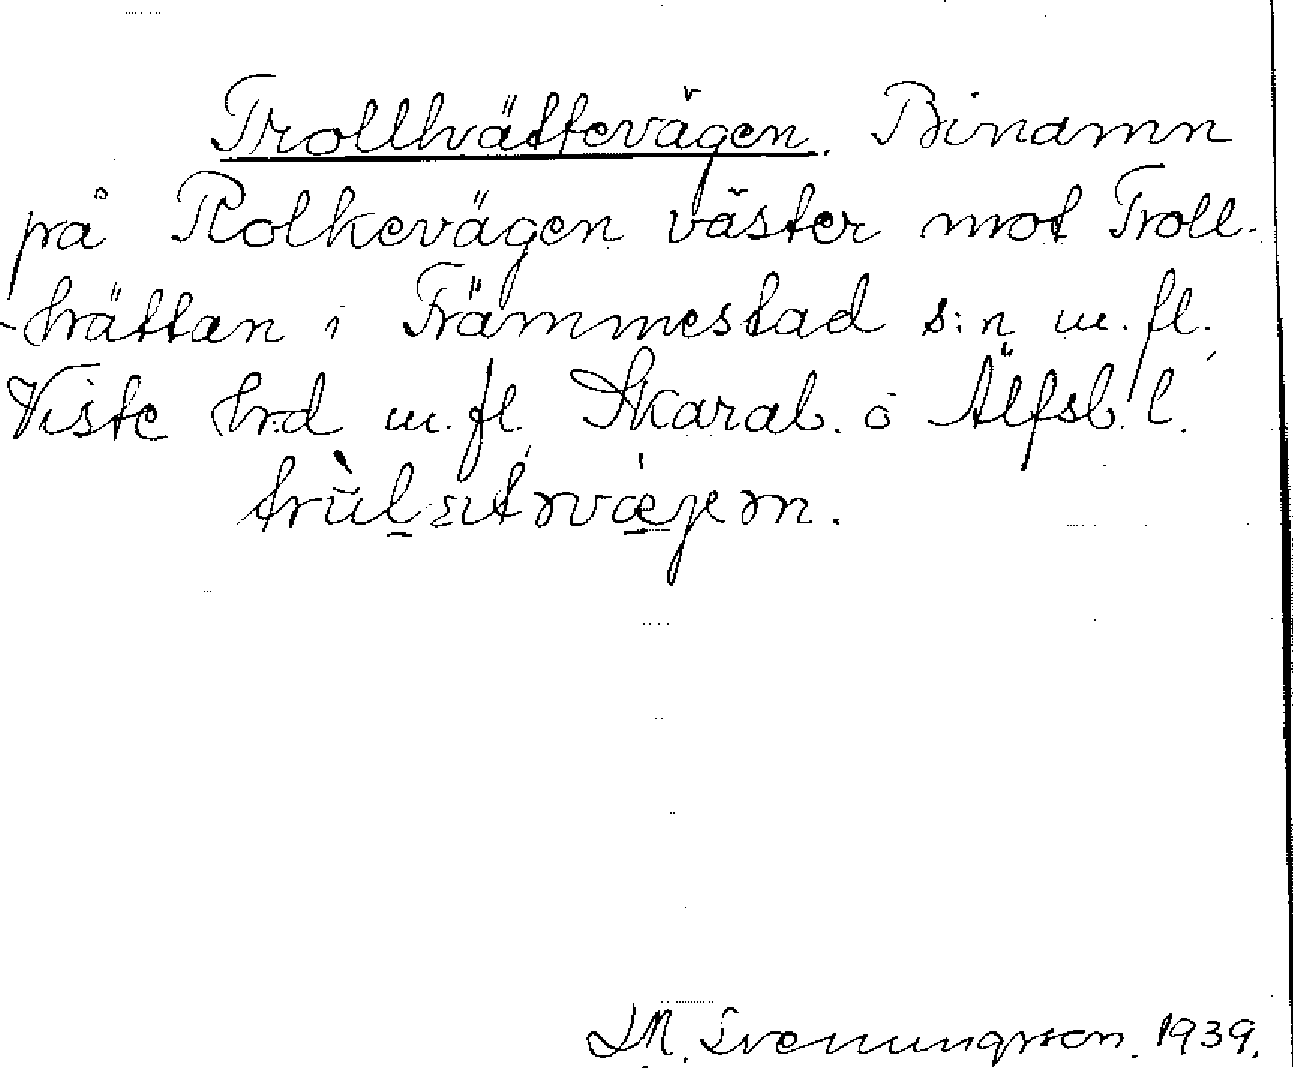 Trollhättevägen. Binamn
på Rolkevägen väster mot Troll-
-hättan i Främmestad s:n m. fl.
Viste hrd m. fl. Skarab. o Älfsb. l.
S. M. Svenungsson. 1939.